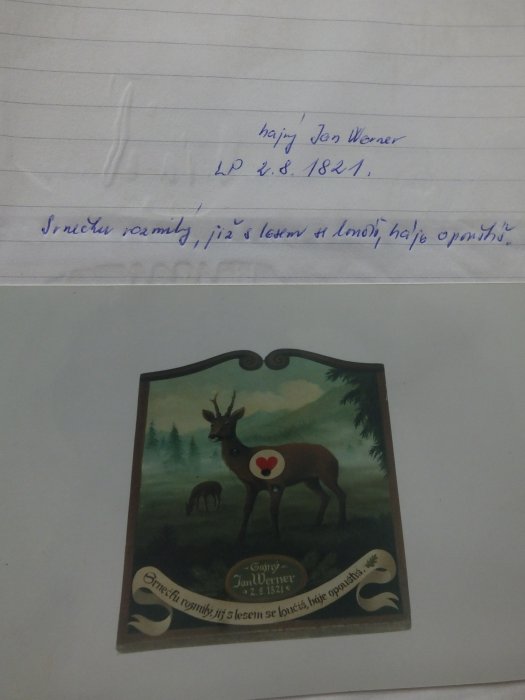 hajný Jan Werner
LP 2.8. 1821.
Srnečku rozmilý, již s lesem se loučíš, háje opouštíš.
- Gajný -
Jan Werner
* 2. 8. 1821 *
Srnečku rozmilý, již s lesem se loučíš, háje opouštíš.